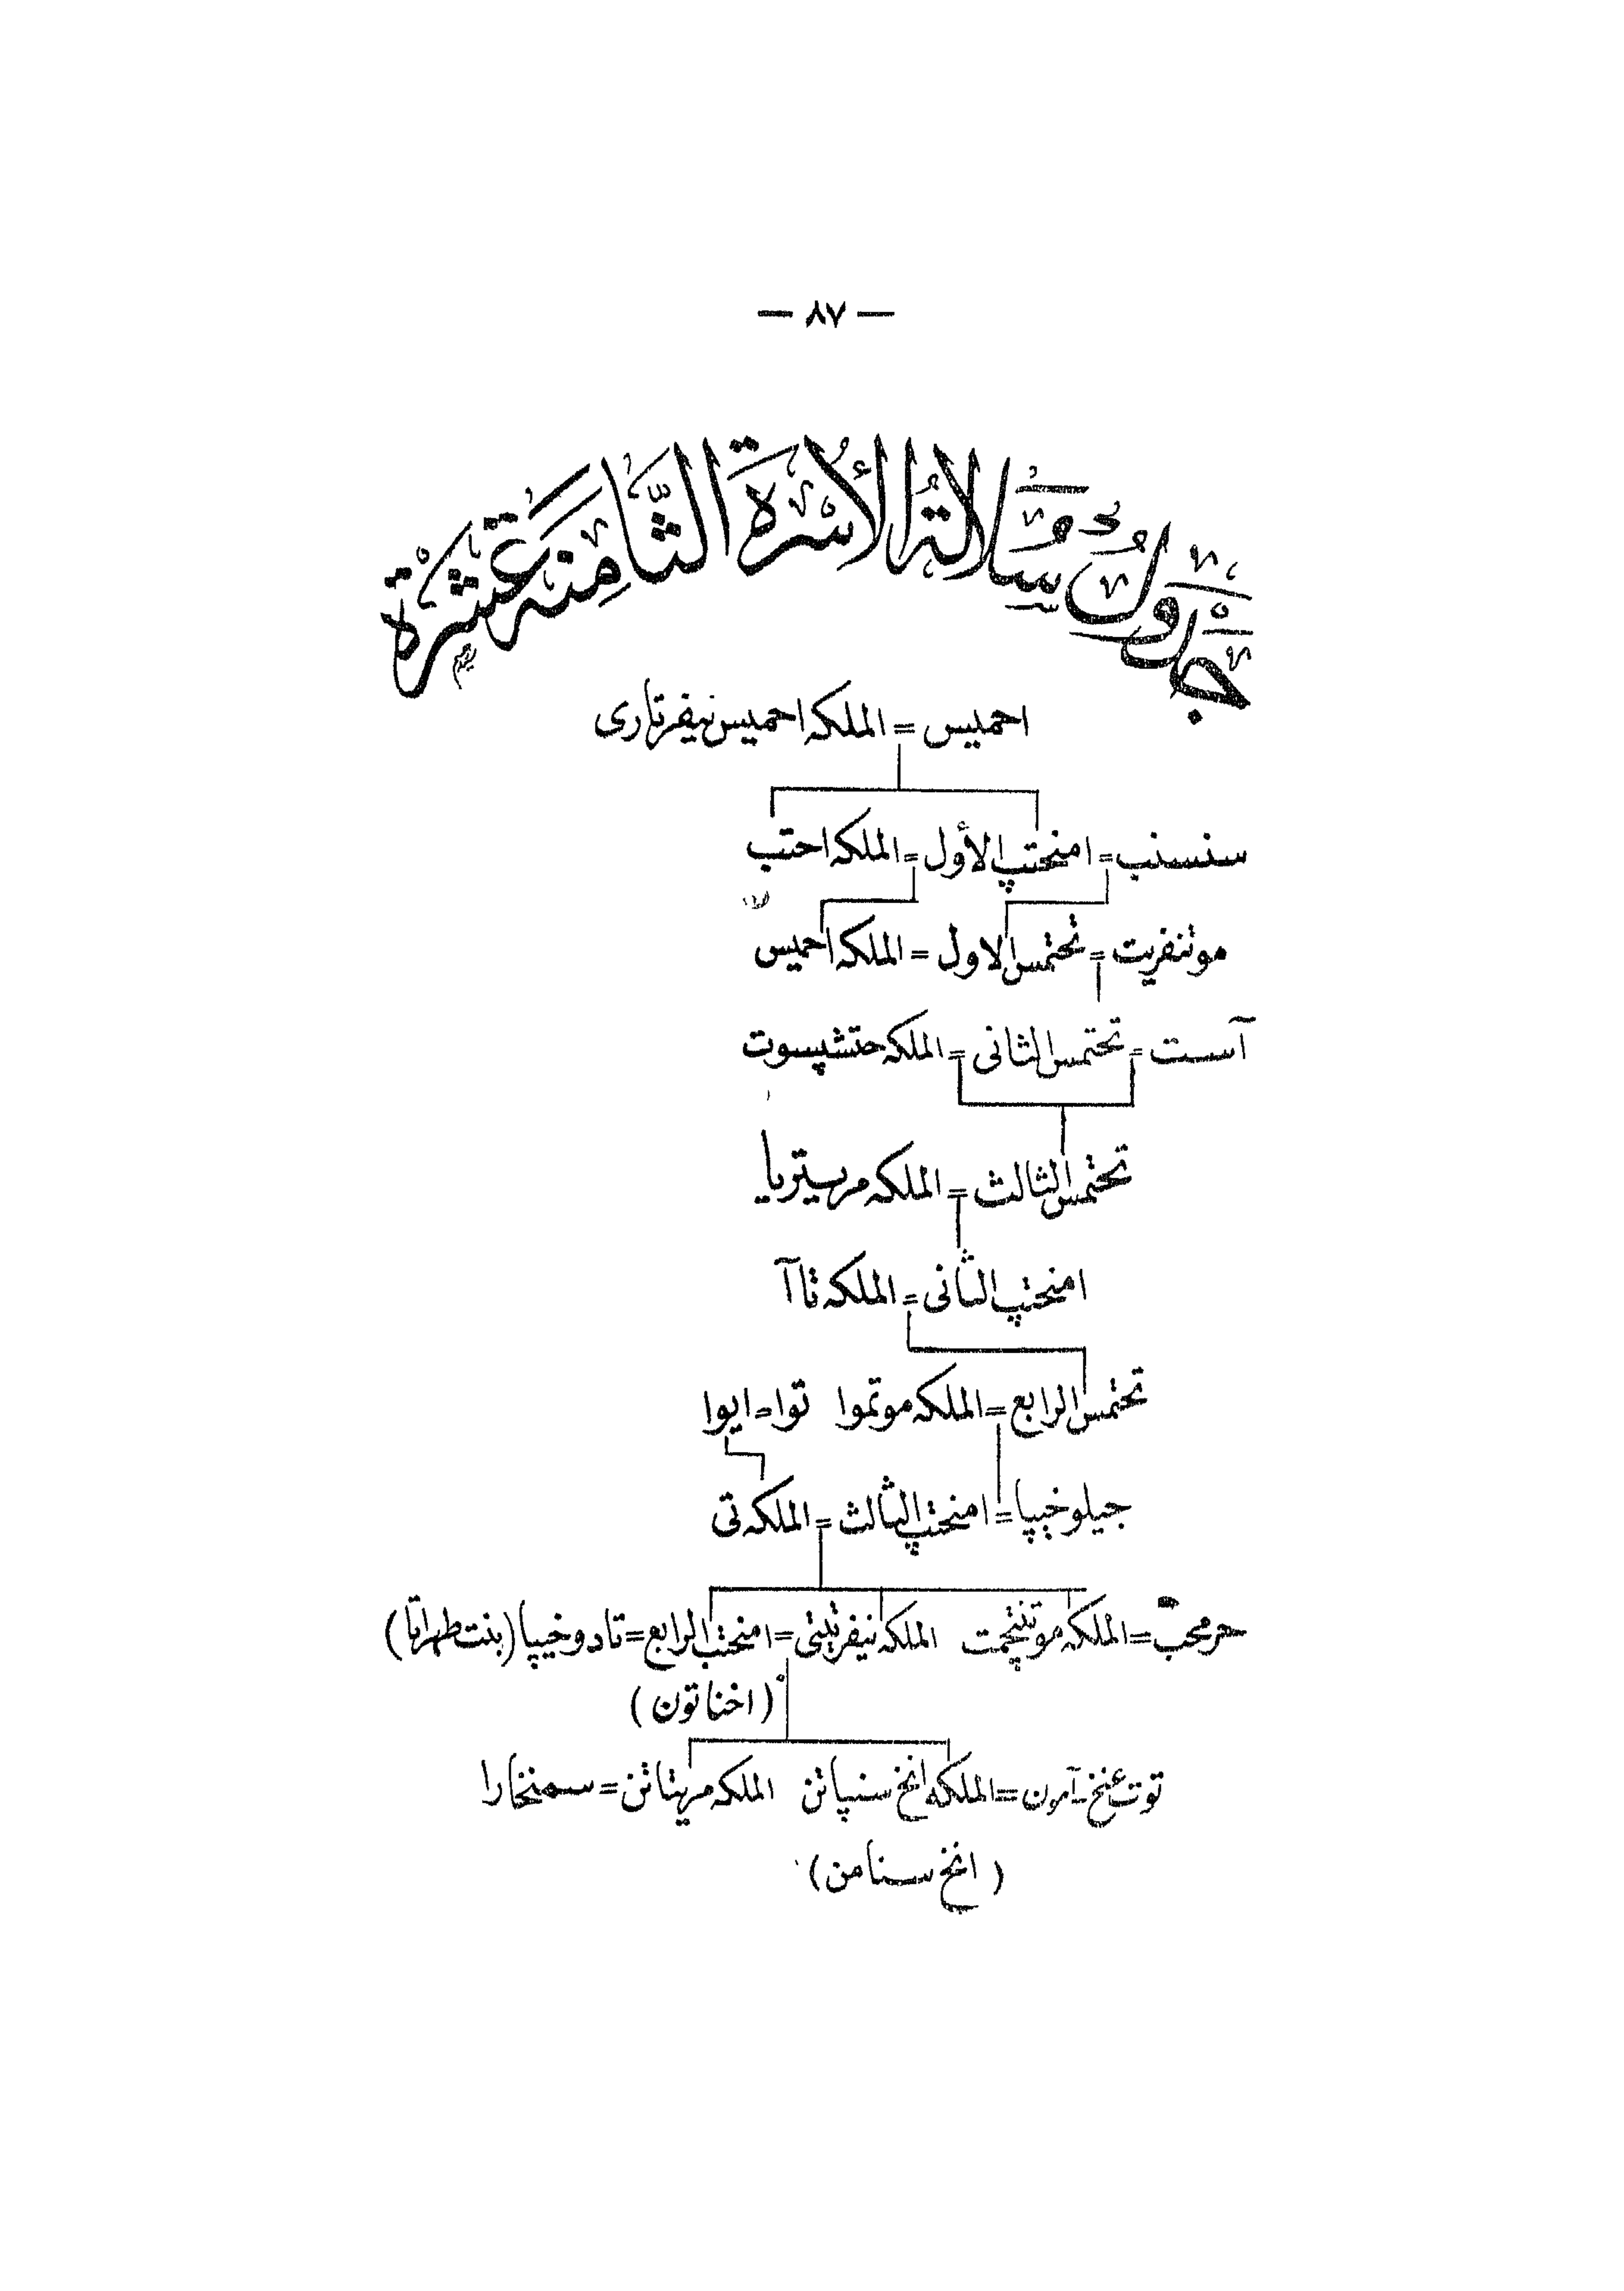 — ٨٧ —
جَدْوَلُ سُلالَةُ الأُسْرَةِ الثَّامِنَه عَشْرَة
احميس = الملكه احميس نيفرتارى
سنسنب = امنحتپ الأول = الملكه احتب
موتنفريت = تحتمس الاول = الملكه احميس
آست = تحتمس الثانى = الملكه حتشپسوت
تحتمس الثالث = الملكه مريستريا
امنحتپ الثانى = الملكه تاآ
تحتمس الرابع = الملكه موتموا توا = ايوا
جيلوخيپا = امنحتپ الثالث = الملكه تى
حرمحب = الملكه موتنجمت الملكه نيفرتيتى = امنحتب الرابع = تادوخيپا (بنت طهراتا)
(اخناتون)
توت عنخ آمون = الملكه انخ سنپاتن الملكه مريتاتن = سمنخارا
(انخ سنامن)